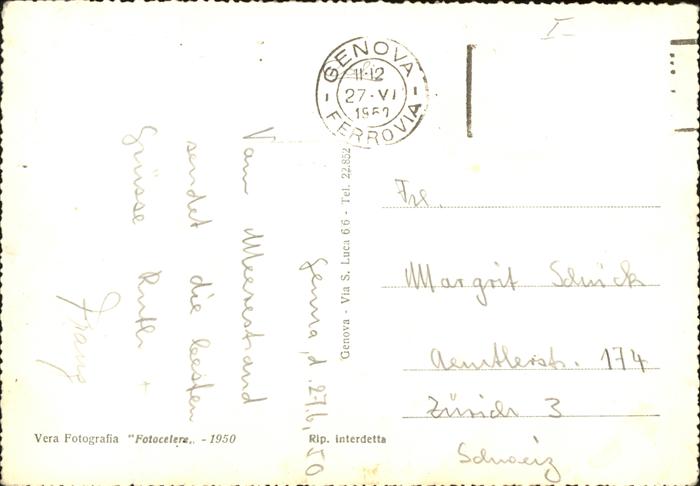 GENOVA
11-12
27·VI
FERROVIA
I
Genova - Via S. Luca 66 - Tel. 22.852
Genua, d. 27.6.50
Vom Meeresstrand
sendet die besten
Grüsse Ruth +
Franz
Frl.
Margrit Schück
Aemtlerstr. 174
Zürich 3
Schweiz
Vera Fotografia "Fotocelere„ - 1950
Rip. interdetta